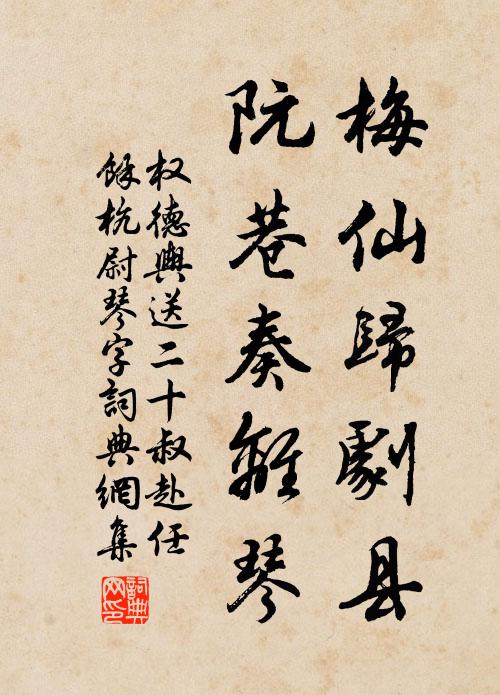 梅仙歸劇县
阮巷奏離琴
权德輿送二十叔赴任
餘杭尉琴字詞典網集
詞典
网印